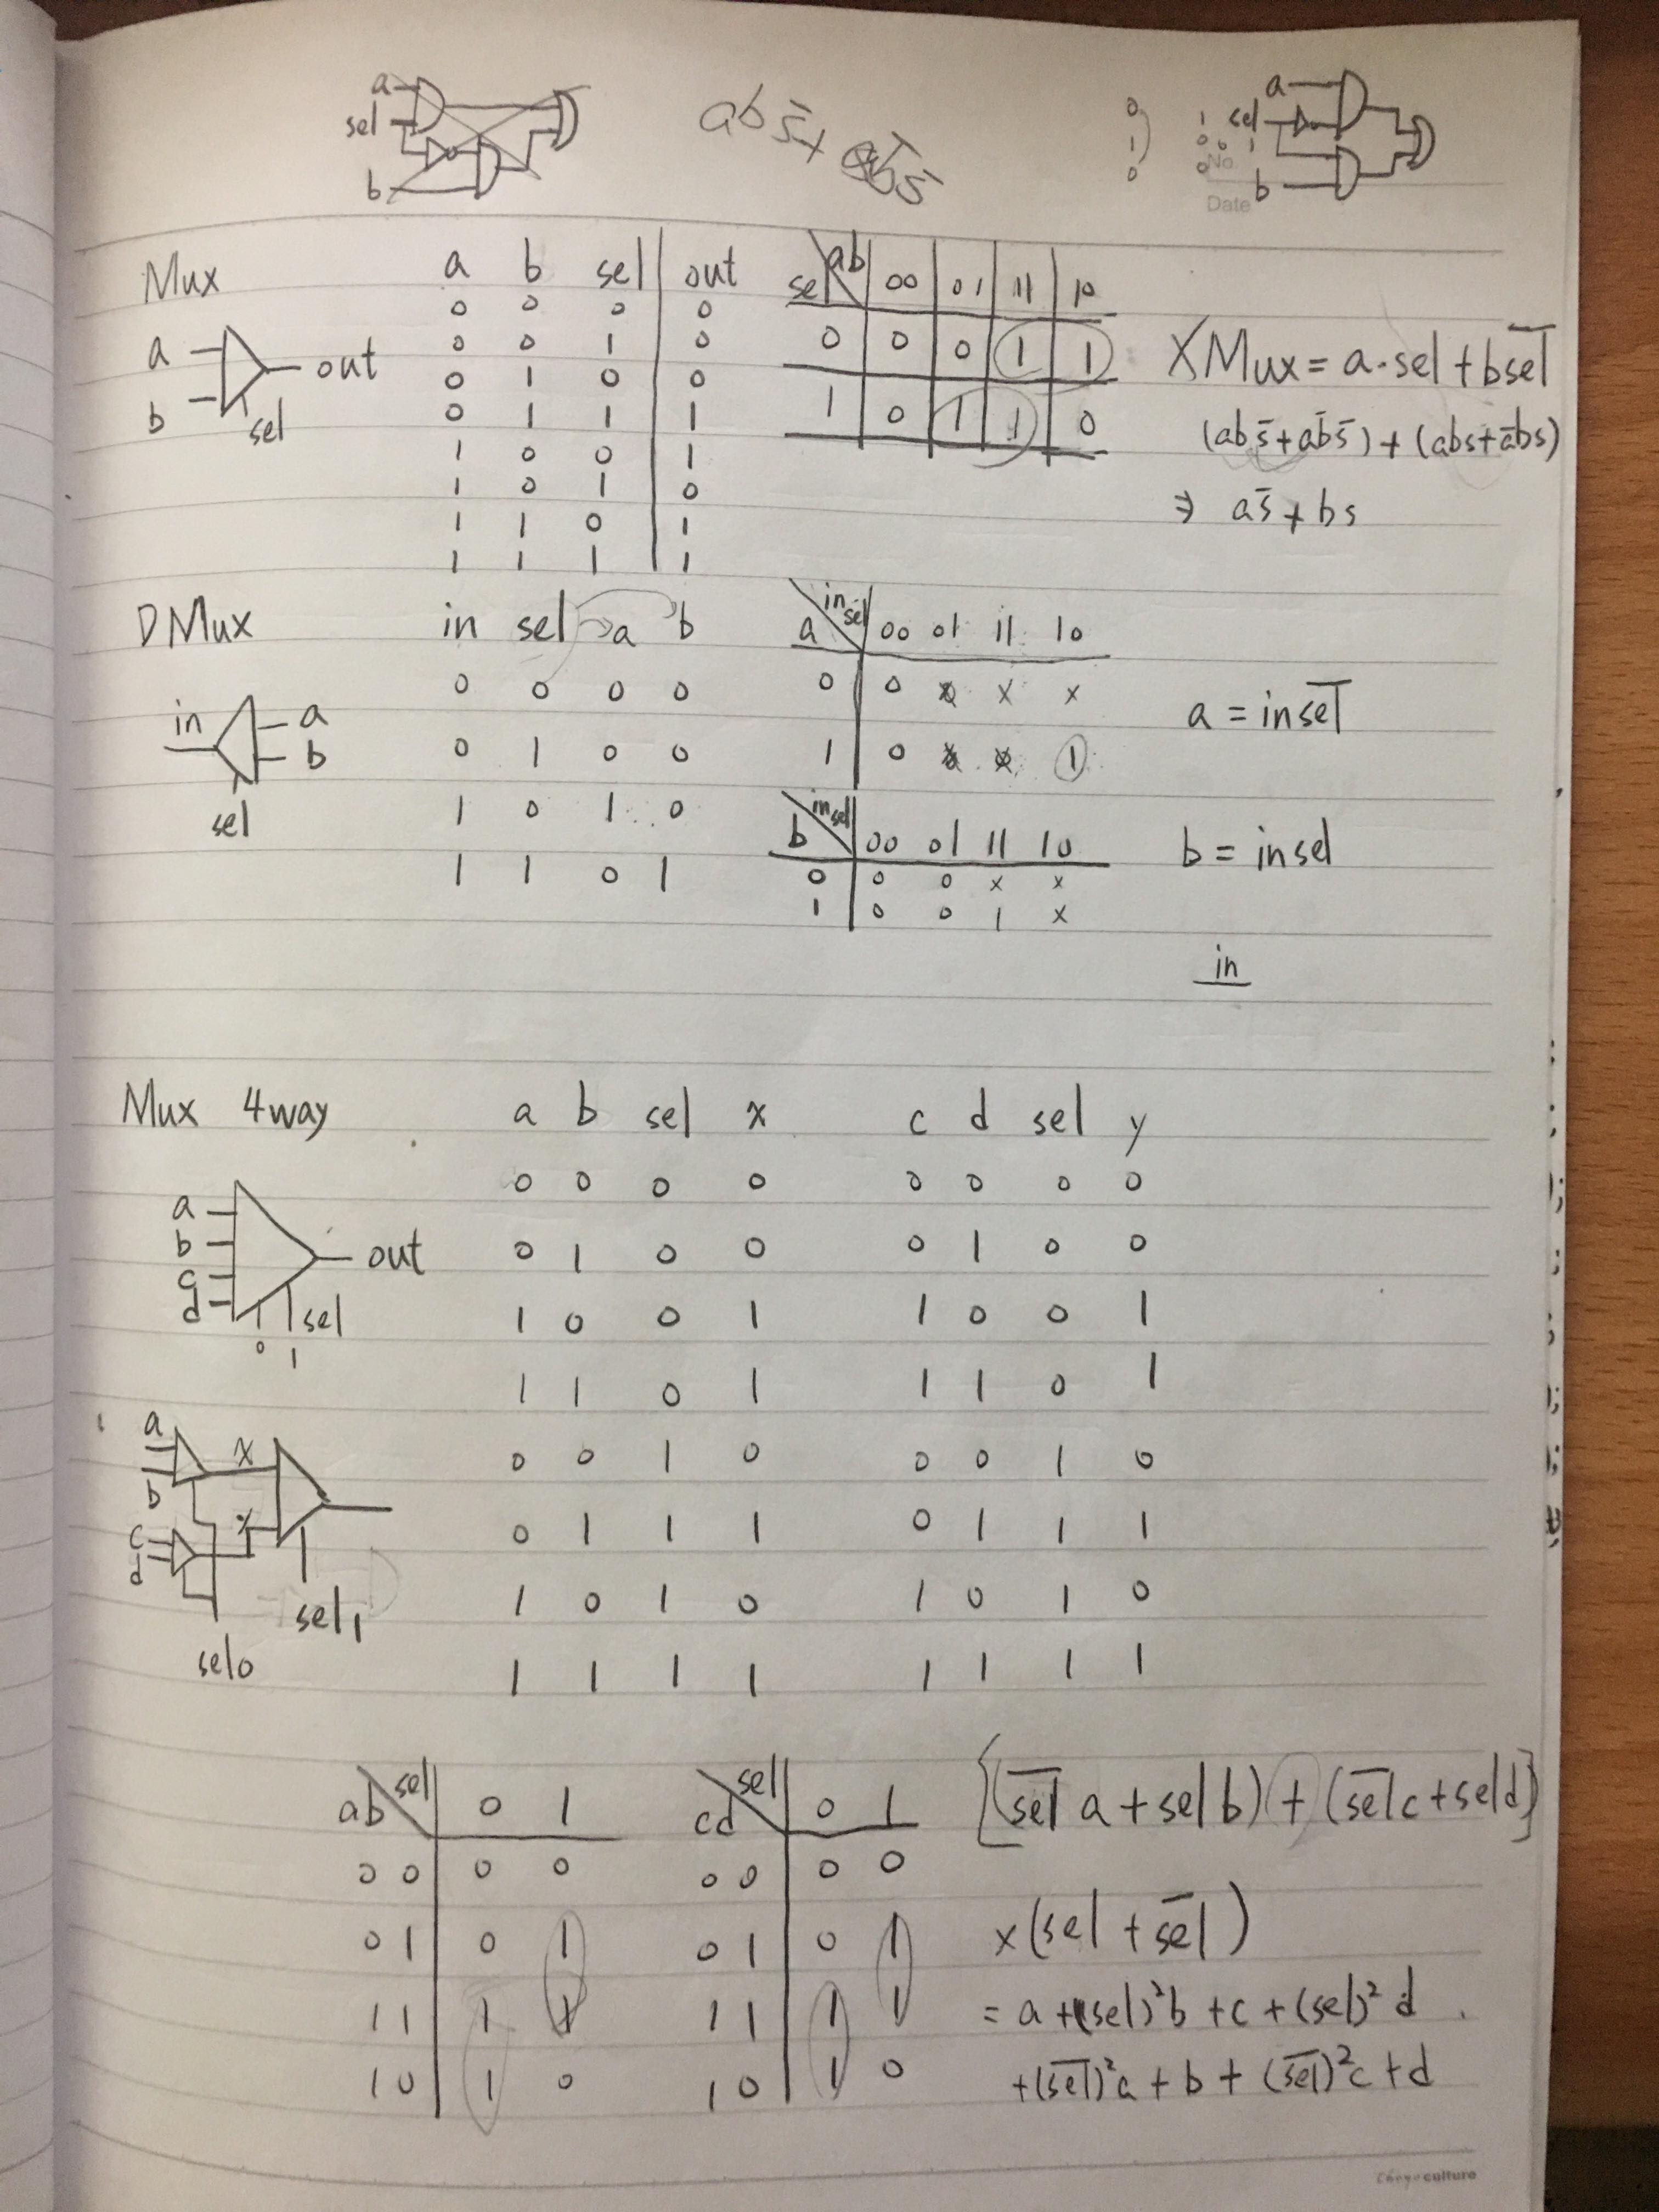 a
sel
b
abs̄+
0
1
0
a
sel
b
No
Date
Mux
a b sel out
0 0 0 0
0 0 1 0
0 1 0 0
0 1 1 1
1 0 0 1
1 0 1 0
1 1 0 1
1 1 1 1
a
b
out
sel
ab
sel 00 01 11 10
0 0 0 1 1
1 0 1 1 0
XMux = a·sel + b s̅e̅l̅
(abs̄+ab̄s̄)+(abs+ābs)
⇒ as̄+bs
DMux
in sel a b
0 0 0 0
0 1 0 0
1 0 1 0
1 1 0 1
in
a
b
sel
in sel
a 00 01 11 10
0 0 x x x
1 0 x x 1
a = in s̅e̅l̅
in sel
b 00 01 11 10
0 0 0 x x
1 0 0 1 x
b = in sel
in
Mux 4way
a
b
c
d
out
sel
0 1
a b sel x
0 0 0 0
0 1 0 0
1 0 0 1
1 1 0 1
0 0 1 0
0 1 1 1
1 0 1 0
1 1 1 1
c d sel y
0 0 0 0
0 1 0 0
1 0 0 1
1 1 0 1
0 0 1 0
0 1 1 1
1 0 1 0
1 1 1 1
a
b
x
c
d
y
sel1
sel0
ab sel 0 1
00 0 0
01 0 1
11 1 1
10 1 0
cd sel 0 1
00 0 0
01 0 1
11 1 1
10 1 0
[(s̅e̅l̅ a + sel b) + (s̅e̅l̅ c + sel d]
x(sel + s̅e̅l̅)
= a + (sel)²b + c + (sel)²d
+(s̅e̅l̅)²a + b + (s̅e̅l̅)²c + d
culture